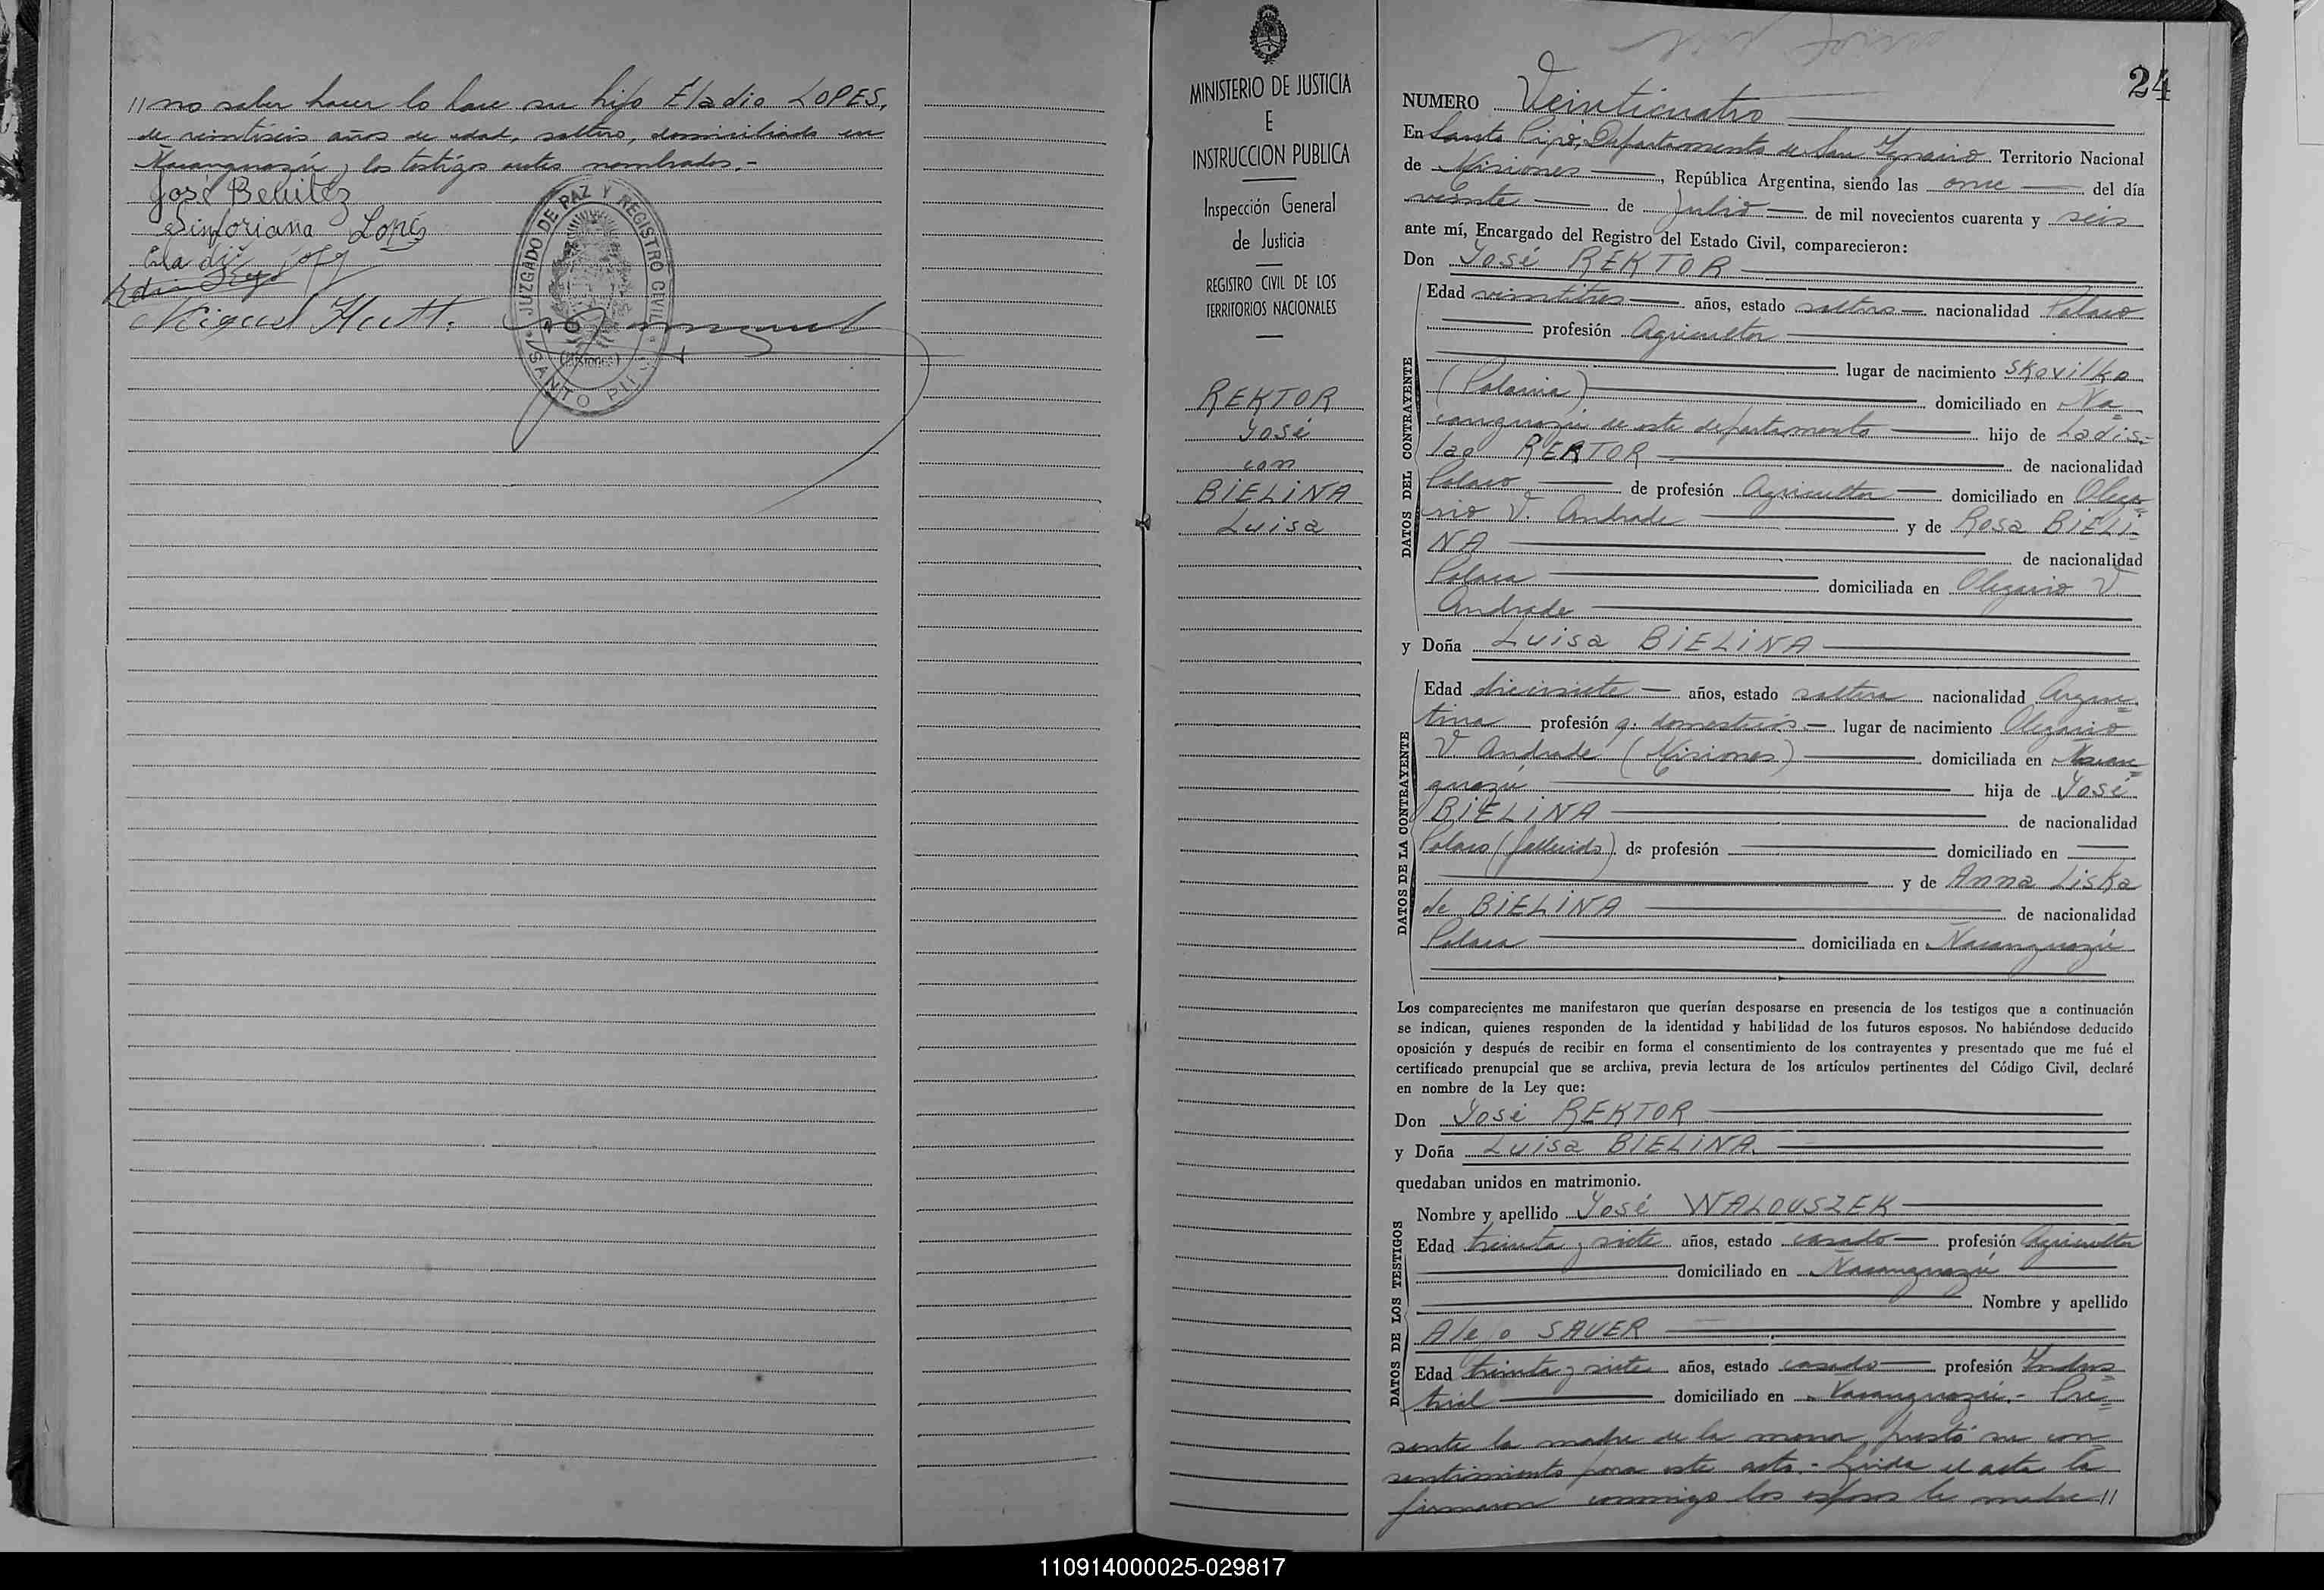 // no saber hacer lo hace su hijo Eladio LOPES,
de veintiseis años de edad, soltero, domiciliado en
Ñacanguazú y los testigos antes nombrados.-
José Benitez
Sinforiana Lopes
Miguel Hutt.
JUZGADO DE PAZ Y REGISTRO CIVIL
(Misiones)
SANTO PIPÓ
MINISTERIO DE JUSTICIA
E
INSTRUCCION PUBLICA
Inspección General
de Justicia
REGISTRO CIVIL DE LOS
TERRITORIOS NACIONALES
REKTOR
José
con
BIELINA
Luisa
24
NUMERO Veinticuatro
En Santo Pipó, Departamento de San Ignacio Territorio Nacional
de Misiones, República Argentina, siendo las once del día
veinte de Julio de mil novecientos cuarenta y seis
ante mí, Encargado del Registro del Estado Civil, comparecieron:
Don José REKTOR
DATOS DEL CONTRAYENTE
Edad veintitres años, estado soltero nacionalidad Polaco
profesión Agricultor
lugar de nacimiento Skovilko
(Polonia) domiciliado en Ña=
canguazú de este departamento hijo de Ladis=
lao REKTOR de nacionalidad
Polaco de profesión Agricultor domiciliado en Olega=
rio V. Andrade y de Rosa BIELI=
NA de nacionalidad
Polaca domiciliada en Olegario V.
Andrade
y Doña Luisa BIELINA
DATOS DE LA CONTRAYENTE
Edad diecisiete años, estado soltera nacionalidad Argen=
tina profesión q. domesticos lugar de nacimiento Olegario
V Andrade (Misiones) domiciliada en Ñacan=
guazú hija de José
BIELINA de nacionalidad
Polaco (fallecido) de profesión domiciliado en
y de Anna Liska
de BIELINA de nacionalidad
Polaca domiciliada en Ñacanguazú
Los comparecientes me manifestaron que querían desposarse en presencia de los testigos que a continuación
se indican, quienes responden de la identidad y habilidad de los futuros esposos. No habiéndose deducido
oposición y después de recibir en forma el consentimiento de los contrayentes y presentado que me fué el
certificado prenupcial que se archiva, previa lectura de los artículos pertinentes del Código Civil, declaré
en nombre de la Ley que:
Don José REKTOR
y Doña Luisa BIELINA.
quedaban unidos en matrimonio.
DATOS DE LOS TESTIGOS
Nombre y apellido José WALOUSZEK
Edad treinta y siete años, estado casado profesión Agricultor
domiciliado en Ñacanguazú
Nombre y apellido
Alejo SAUER
Edad treinta y siete años, estado casado profesión Indus=
trial domiciliado en Ñacanguazú.- Pre=
sente la madre de la menor, prestó su con
sentimiento para este acto.- Leída el acta la
firmaron conmigo los esposos la madre //
110914000025-029817